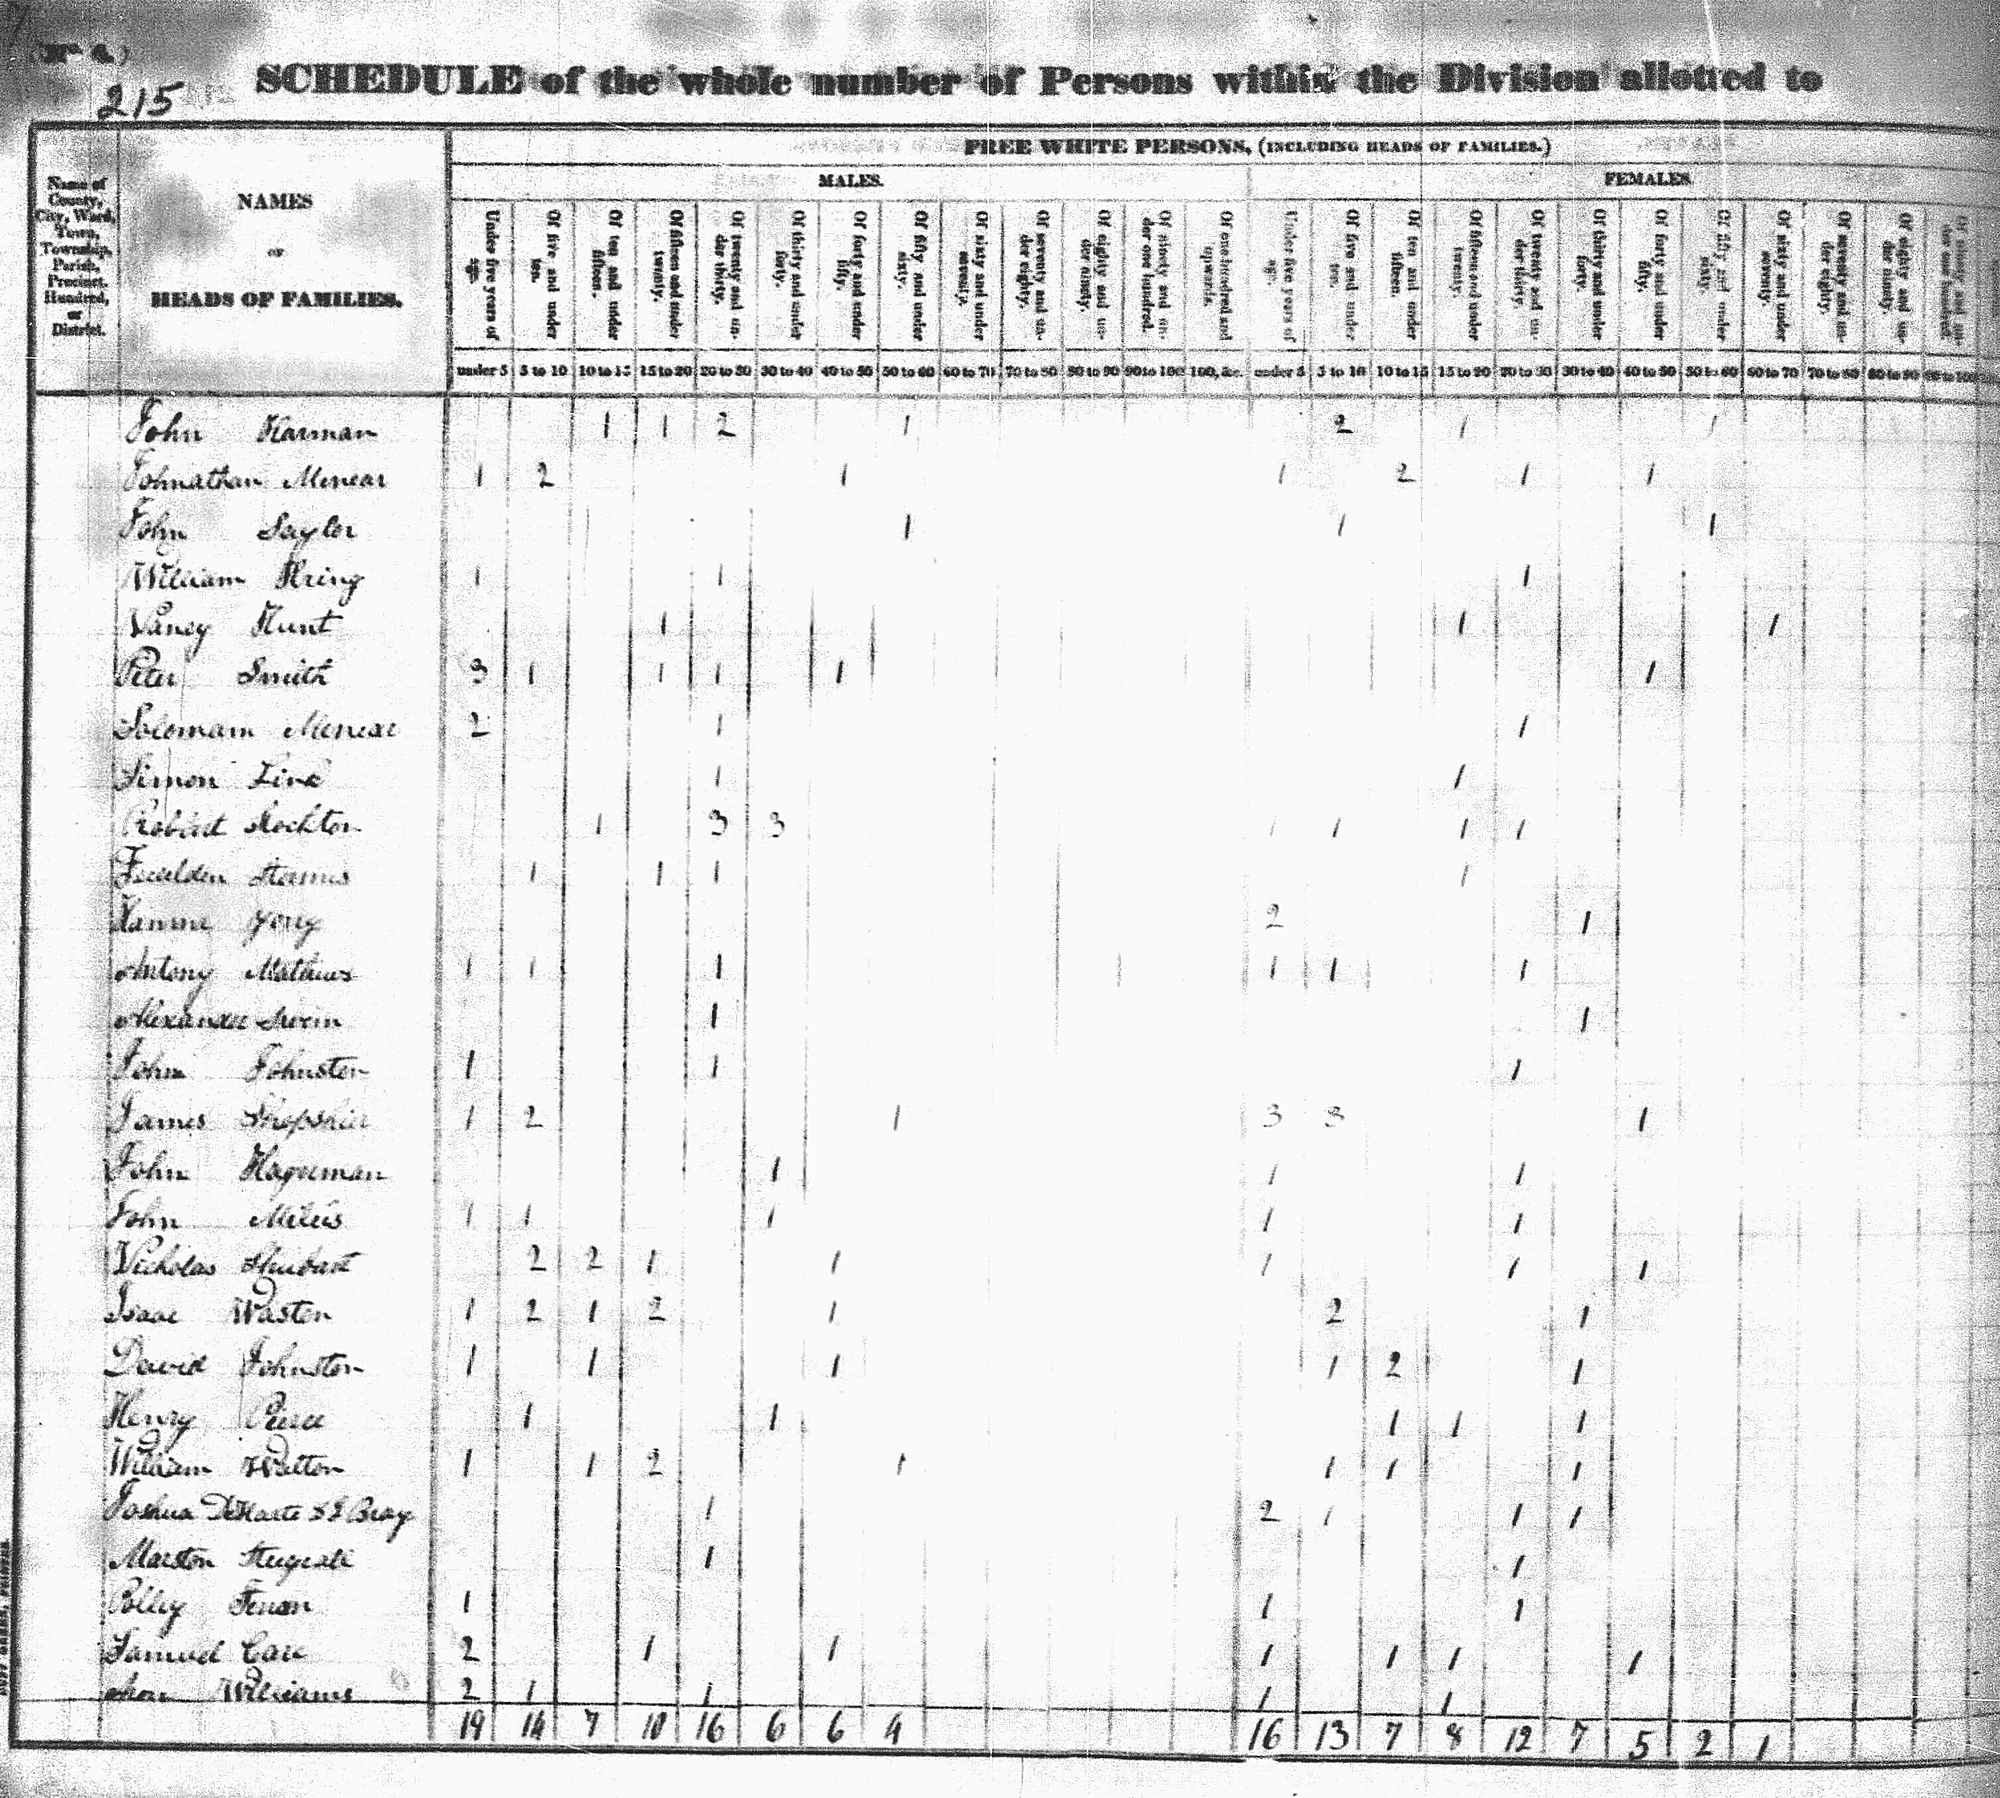 (No. 6.)
215
SCHEDULE of the whole number of Persons within the Division allotted to
FREE WHITE PERSONS, (INCLUDING HEADS OF FAMILIES.)
MALES. FEMALES
Name of County, City, Ward, Town, Township, Parish, Precinct, Hundred, or District.
NAMES
OF
HEADS OF FAMILIES.
Under five years of age. Of five and under ten. Of ten and under fifteen. Of fifteen and under twenty. Of twenty and under thirty. Of thirty and under forty. Of forty and under fifty. Of fifty and under sixty. Of sixty and under seventy. Of seventy and under eighty. Of eighty and under ninety. Of ninety and under one hundred. Of one hundred and upwards. Under five years of age. Of five and under ten. Of ten and under fifteen. Of fifteen and under twenty. Of twenty and under thirty. Of thirty and under forty. Of forty and under fifty. Of fifty and under sixty. Of sixty and under seventy. Of seventy and under eighty. Of eighty and under ninety. Of ninety and under one hundred
under 5 5 to 10 10 to 15 15 to 20 20 to 30 30 to 40 40 to 50 50 to 60 60 to 70 70 to 80 80 to 90 90 to 100 100, &c. under 5 5 to 10 10 to 15 15 to 20 20 to 30 30 to 40 40 to 50 50 to 60 60 to 70 70 to 80 80 to 90 90 to 100
John Harman 1 1 2 1 2 1 1
Johnathan Menear 1 2 1 1 2 1 1
John Saylor 1 1 1
William Hring 1 1 1
Nancy Hunt 1 1 1
Peter Smith 3 1 1 1 1 1
Solomam Menear 2 1 1
Simon 1 1
Robert Stockton 1 3 3 1 1 1 1
1 1 1 1
2 1
Antony Mathews 1 1 1 1 1 1
Alexander 1 1
John Johnston 1 1 1
James Shopshier 1 2 1 3 3 1
John Hagerman 1 1 1
John 1 1 1 1 1
Nicholas 2 2 1 1 1 1 1
Isaac Waston 1 2 1 2 1 2 1
David Johnston 1 1 1 1 2 1
Henry Pierce 1 1 1 1 1
William Walton 1 1 2 1 1 1 1
Joshua DeHarte & J Bray 1 2 1 1 1
Marston 1 1
Polley 1 1 1
Samuel Carr 2 1 1 1 1 1 1
Williams 2 1 1 1 1
19 14 7 10 16 6 6 4 16 13 7 8 12 7 5 2 1